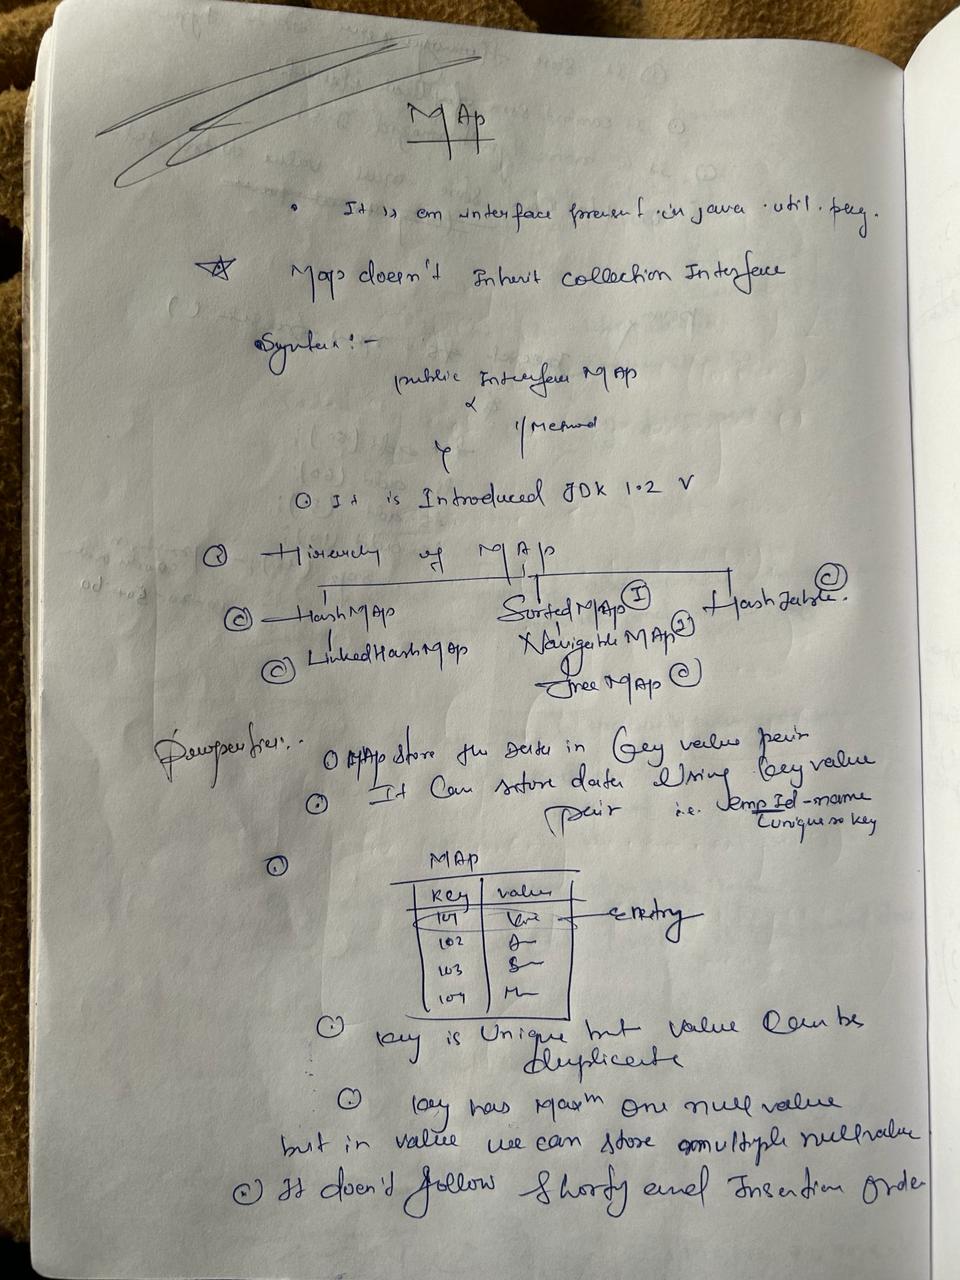 MAp
• It is an interface present in java.util.pkg.
Map doesn't Inherit collection Interface
Syntax:-
public Interface MAp
{
// Method
}
It is Introduced JDK 1.2 V
Hirerchy of MAp
(C) HashMAp SortedMAp (I) Hashtable. (C)
(C) LinkedHashMAp Navigable MAp (I)
TreeMAp (C)
MAp store the Data in key value pair
It Can store data Using key value
pair i.e. emp Id - name
unique so key
MAp
Key value
101 entry
102
103
104
key is Unique but value Can be
duplicate
key has Maxm one null value
but in value we can store multiple null value
It doen't follow Shorty and Insertion Order